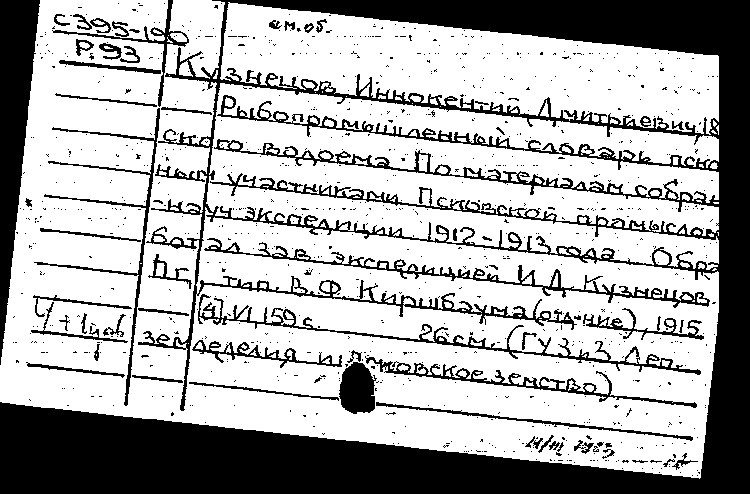 ам. об.
С 395-190
Р. 93
Кузнецов, Иннокентий Дмитриевич, 18
Рыбопромышленный словарь пско
ского водоема. По материалам, собран
ным участниками Псковской промыслов
-науч экспедиции 1912-1913 года. Обра
ботал зав экспедицией И.Д. Кузнецов.
Пг., тип. В.Ф. Киршбаума (отд-ние), 1915
VI, 159 с. 26 см. (ГУЗ и З. Деп.
земделелия и Псковское земство)